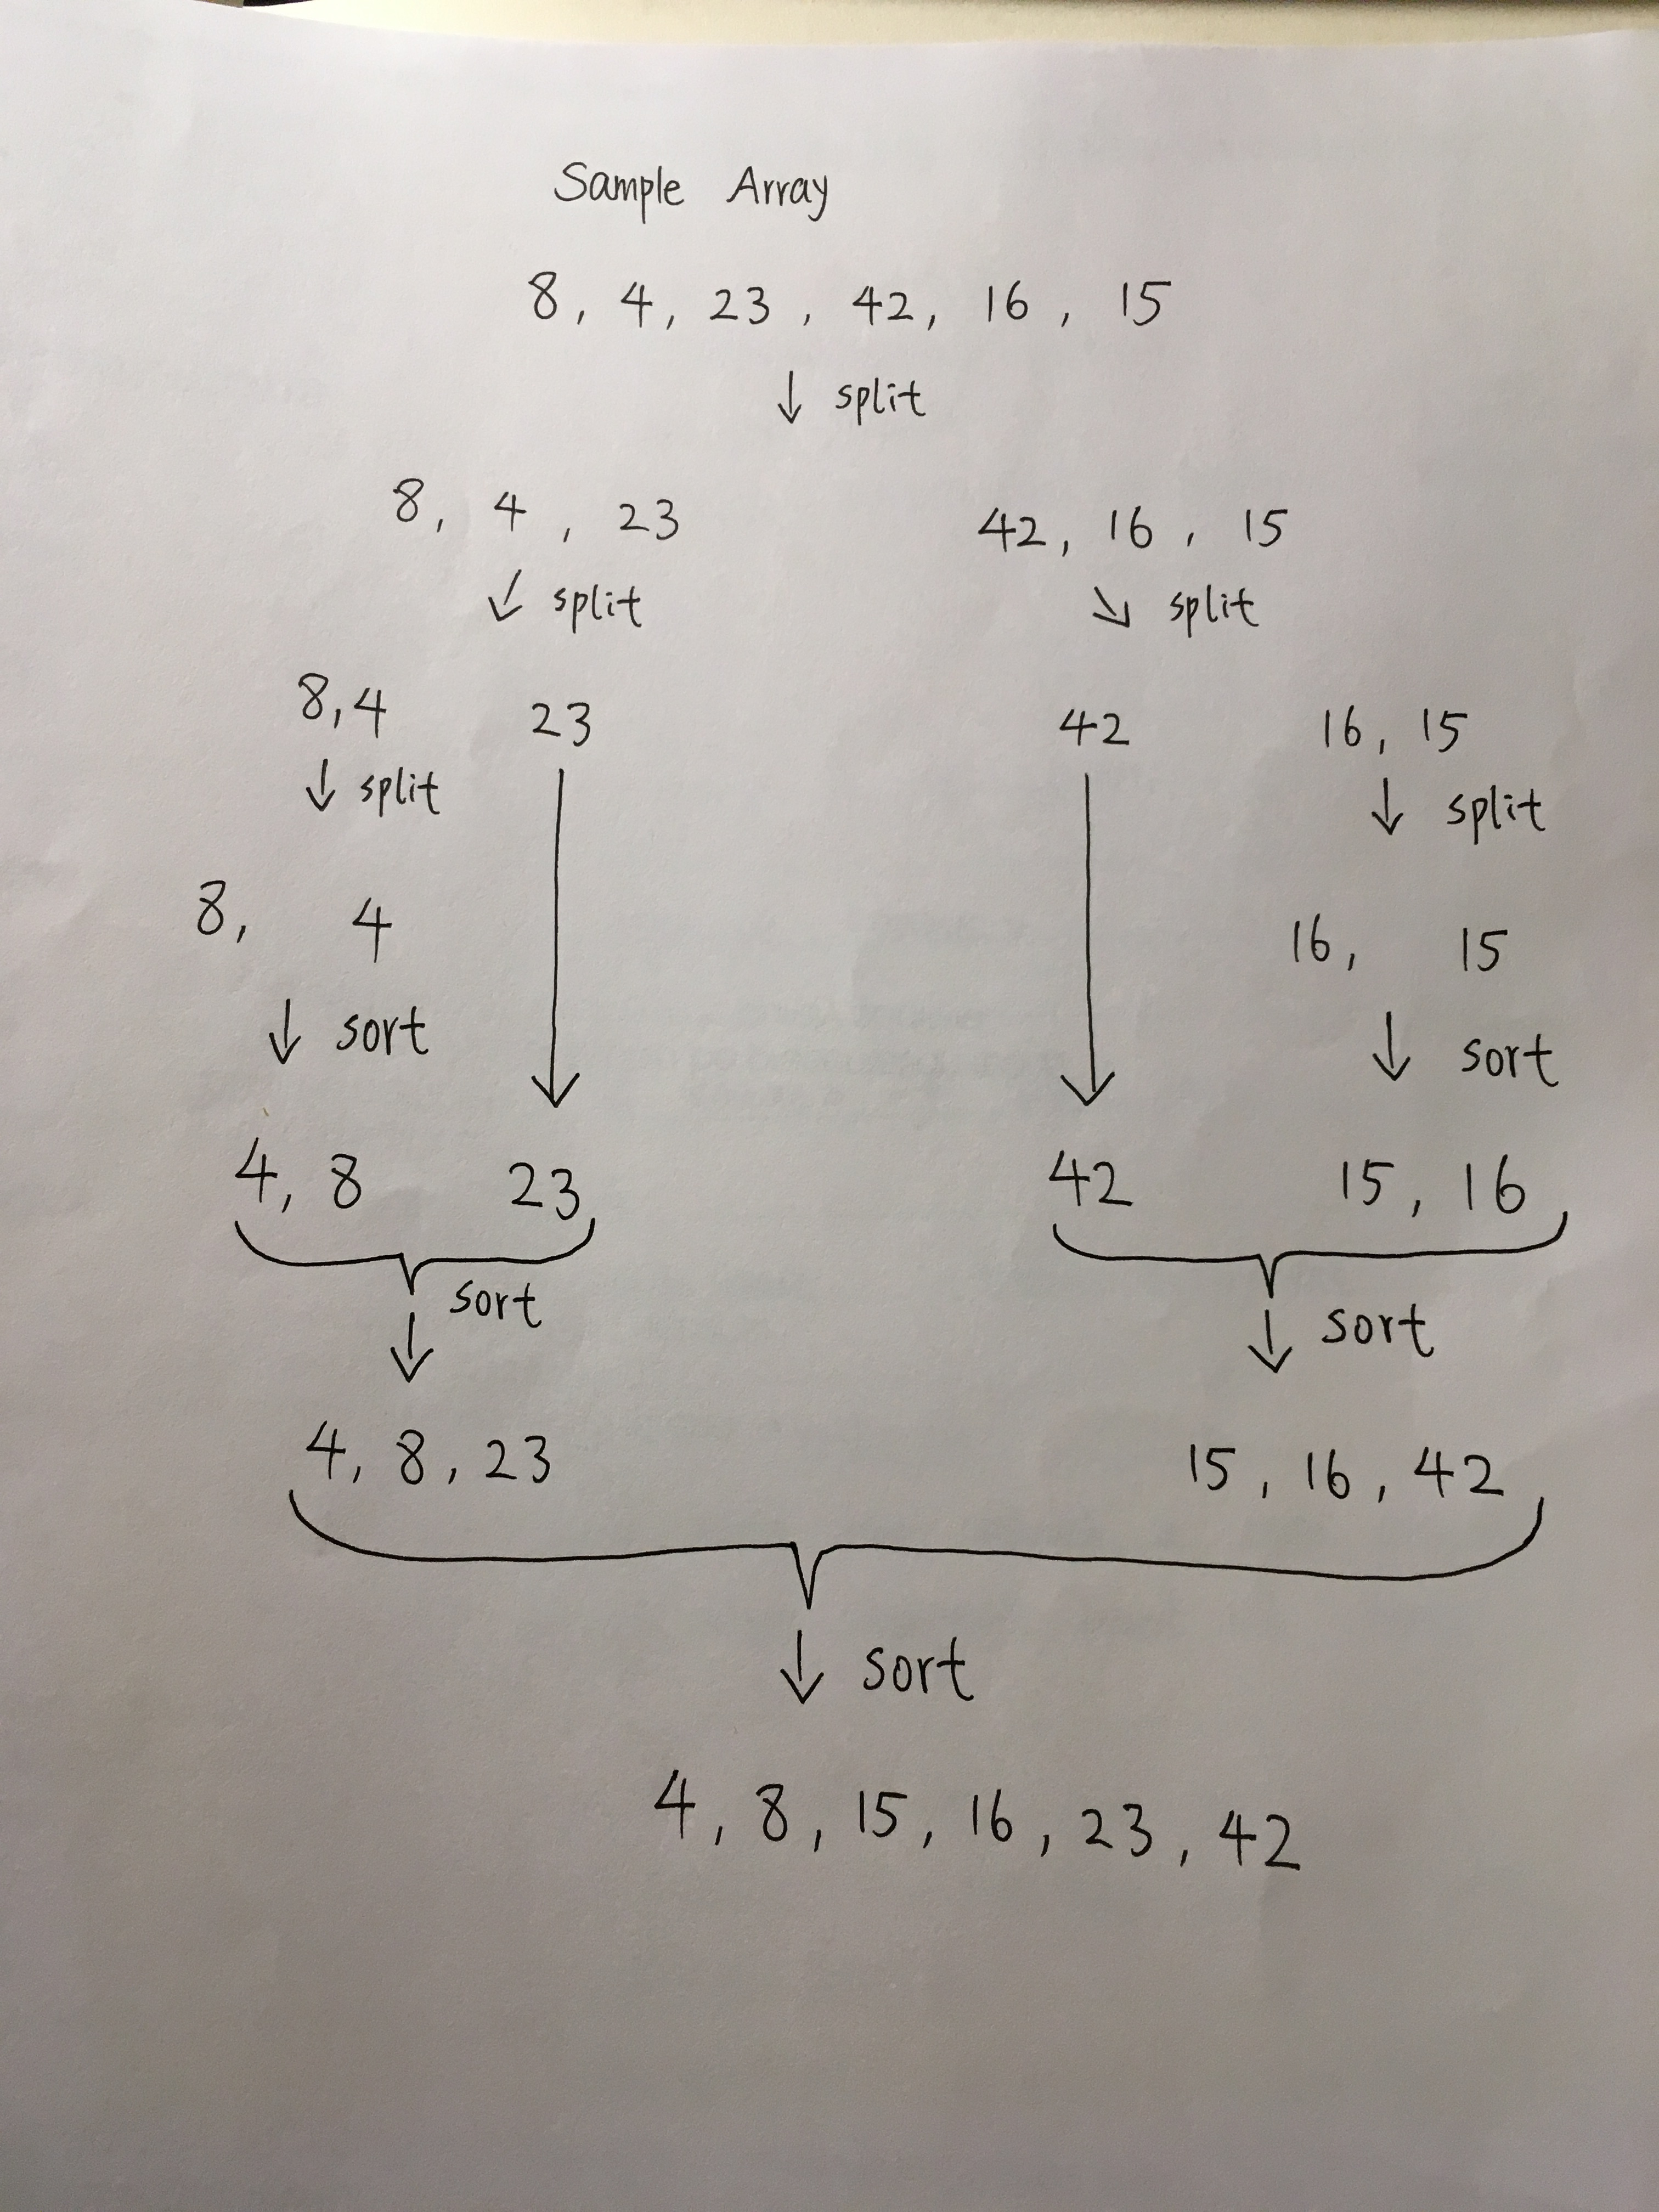 Sample Array
8, 4, 23, 42, 16, 15
↓ split
8, 4, 23 42, 16, 15
↙ split ↘ split
8,4 23 42 16, 15
↓ split ↓ split
8, 4 16, 15
↓ sort ↓ sort
4, 8 23 42 15, 16
↓ sort ↓ sort
4, 8, 23 15, 16, 42
↓ sort
4, 8, 15, 16, 23, 42